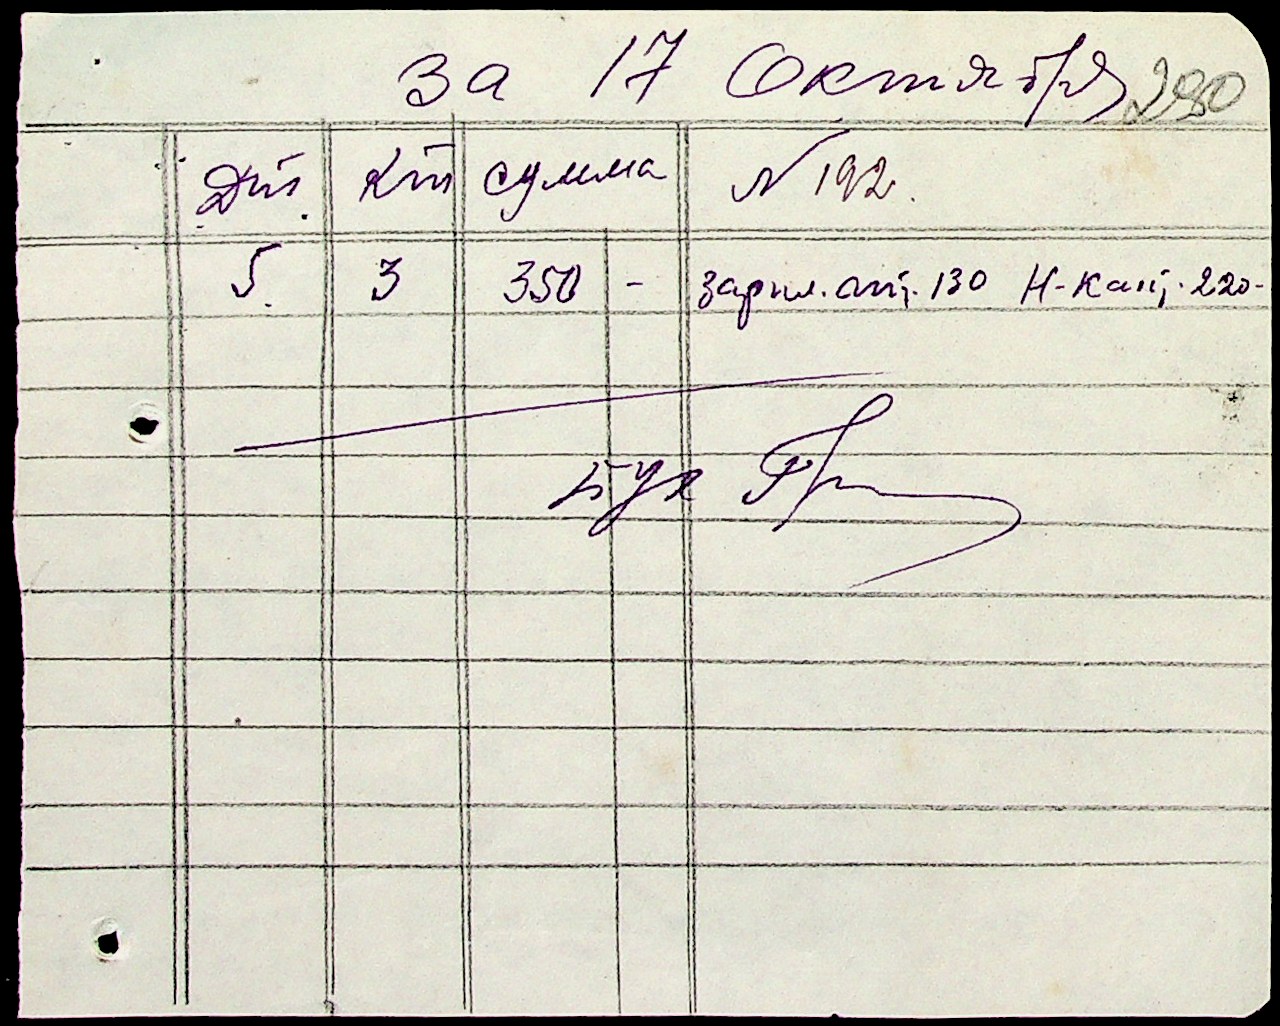 за 17 Октября 280
Дт. Кт сумма N 192.
5. 3 350 - зарпл. 130 Н-Канц. 220-
Бух